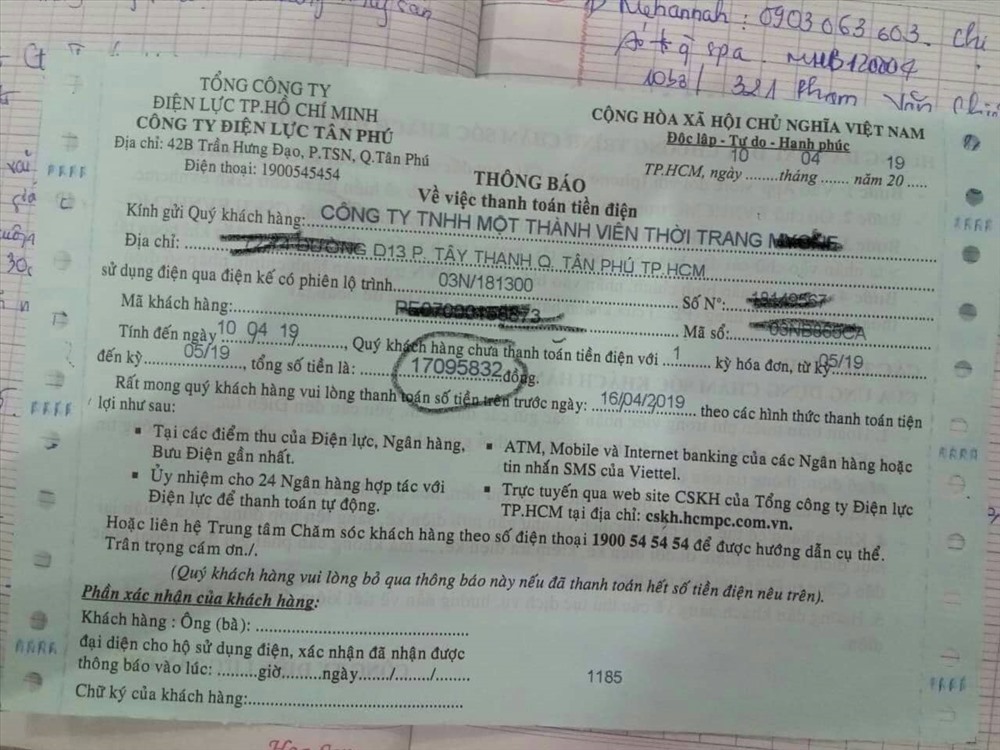 Mehannah : 0903 063 603. chi
spa. MHB120004
1058/ 321 Phạm Văn Chí
TỔNG CÔNG TY
ĐIỆN LỰC TP.HỒ CHÍ MINH
CÔNG TY ĐIỆN LỰC TÂN PHÚ
Địa chỉ: 42B Trần Hưng Đạo, P.TSN, Q.Tân Phú
Điện thoại: 1900545454
CỘNG HÒA XÃ HỘI CHỦ NGHĨA VIỆT NAM
Độc lập - Tự do - Hạnh phúc
10 04 19
TP.HCM, ngày ........tháng ....... năm 20 .....
THÔNG BÁO
Về việc thanh toán tiền điện
Kính gửi Quý khách hàng: CÔNG TY TNHH MỘT THÀNH VIÊN THỜI TRANG
Địa chỉ: ĐƯỜNG D13 P. TÂY THẠNH Q. TÂN PHÚ TP.HCM
sử dụng điện qua điện kế có phiên lộ trình 03N/181300 Số Nº:
Mã khách hàng: Mã số:
Tính đến ngày 10 04 19, Quý khách hàng chưa thanh toán tiền điện với 1 kỳ hóa đơn, từ kỳ 05/19
đến kỳ 05/19, tổng số tiền là: 17095832 đồng.
Rất mong quý khách hàng vui lòng thanh toán số tiền trên trước ngày: 16/04/2019 theo các hình thức thanh toán tiện
lợi như sau:
▪ Tại các điểm thu của Điện lực, Ngân hàng,
Bưu Điện gần nhất.
▪ Ủy nhiệm cho 24 Ngân hàng hợp tác với
Điện lực để thanh toán tự động.
▪ ATM, Mobile và Internet banking của các Ngân hàng hoặc
tin nhắn SMS của Viettel.
▪ Trực tuyến qua web site CSKH của Tổng công ty Điện lực
TP.HCM tại địa chỉ: cskh.hcmpc.com.vn.
Hoặc liên hệ Trung tâm Chăm sóc khách hàng theo số điện thoại 1900 54 54 54 để được hướng dẫn cụ thể.
Trân trọng cám ơn./.
(Quý khách hàng vui lòng bỏ qua thông báo này nếu đã thanh toán hết số tiền điện nêu trên).
Phần xác nhận của khách hàng:
Khách hàng : Ông (bà): ........................................
đại diện cho hộ sử dụng điện, xác nhận đã nhận được
thông báo vào lúc: .........giờ........ngày......./......../........
Chữ ký của khách hàng:........................................
1185